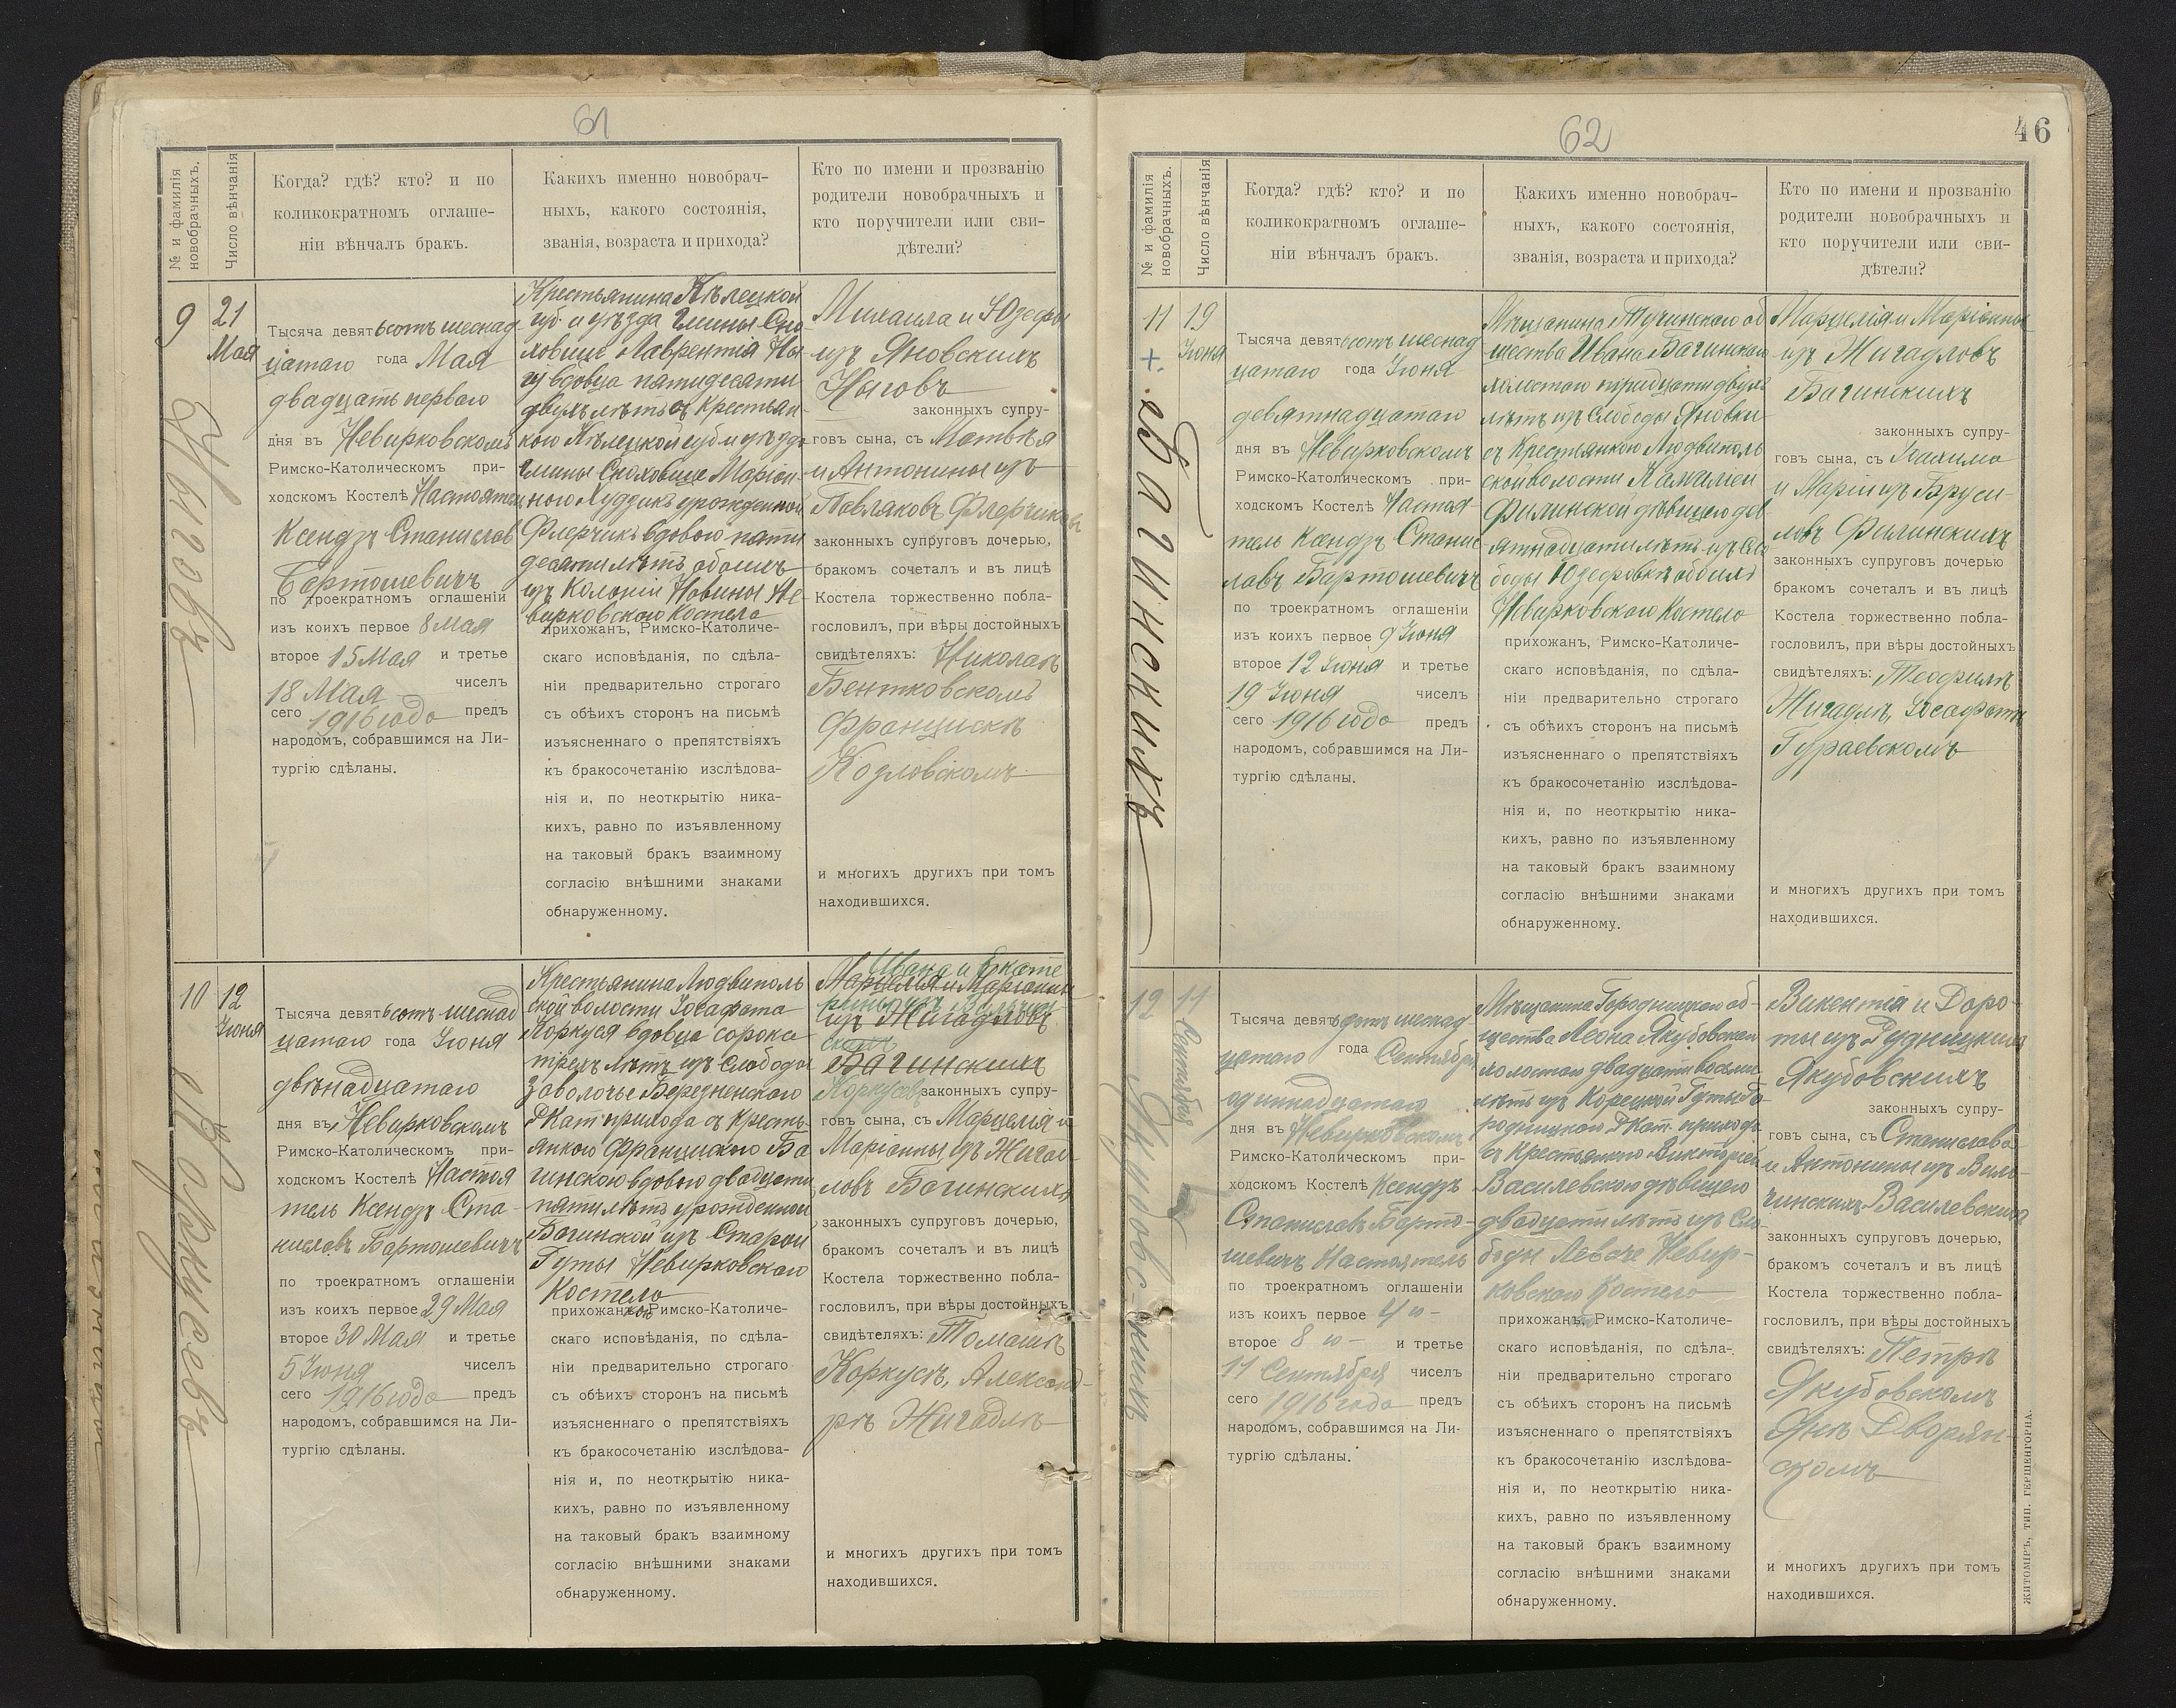 61
№ и фамилія новобрачныхъ.
Число вѣнчанія
Когда? гдѣ? кто? и по
коликократномъ оглаше-
ніи вѣнчалъ бракъ.
Какихъ именно новобрач-
ныхъ, какого состоянія,
званія, возраста и прихода?
Кто по имени и прозванію
родители новобрачныхъ и
кто поручители или сви-
дѣтели?
9
21
Мая
Ныговъ
Тысяча девятьсотъ шеснад-
цатаго года Мая
двадцать перваго
дня въ Невирковскомъ
Римско-Католическомъ при-
ходскомъ Костелѣ Настоятель
Ксендзъ Станислав
Бартошевичъ
по троекратномъ оглашеніи
изъ коихъ первое 8 Мая
второе 15 Мая и третье
18 Мая чиселъ
сего 1916 года предъ
народомъ, собравшимся на Ли-
тургію сдѣланы.
Крестьянина Кѣлецкой
губ. и уѣзда Гмины Сно-
ховице Лаврентія Ны-
гу вдовца пятидесяти
двухъ лѣтъ съ Крестьян-
кою Кѣлецкой губ и уѣзда
Гмины Сноховице Маріан-
ною урожденной
Флерчикъ вдовою пяти
десяти лѣтъ обоихъ
изъ Колоніи Новины Не-
вирковскаго Костела
прихожан, Римско-Католиче-
скаго исповѣданія, по сдѣла-
ніи предварительно строгаго
съ обѣихъ сторонъ на письмѣ
изъясненнаго о препятствіяхъ
къ бракосочетанію изслѣдова-
нія и, по неоткрытію ника-
кихъ, равно по изъявленному
на таковый бракъ взаимному
согласію внѣшними знаками
обнаруженному.
Михаила и Юзефы
изъ Яновскихъ
Ныговъ
законныхъ супру-
говъ сына, съ Матвѣя
и Антонины изъ
Павляковъ Флерчиковъ
законныхъ супруговъ дочерью,
бракомъ сочеталъ и въ лицѣ
Костела торжественно побла-
гословилъ, при вѣры достойныхъ
свидѣтеляхъ: Николаѣ
Бентковскомъ
Францискѣ
Козловскомъ
и многихъ другихъ при томъ
находившихся.
10
12
Июня
Коркусевъ
Тысяча девятьсотъ шеснад
цатаго года Июня
двѣнадцатаго
дня въ Невирковскомъ
Римско-Католическомъ при-
ходскомъ Костелѣ Настоя
тель Ксендзъ Ста-
ниславъ Бартошевичъ
по троекратномъ оглашеніи
изъ коихъ первое 29 Мая
второе 30 Мая и третье
5 Июня чиселъ
сего 1916 года предъ
народомъ, собравшимся на Ли-
тургію сдѣланы.
Крестьянина Людвиполь
ской волости Іосафата
Коркуся вдовца сорока
трехъ лѣтъ изъ Слободы
Заволочье Березненскаго
РКат прихода съ Кресть-
янкою Францишкою Ба
гинскою вдовою двадцати
пяти лѣтъ урожденной
Багинской изъ Старой
Гуты Невирковскаго
Костела
прихожан, Римско-Католиче-
скаго исповѣданія, по сдѣла-
ніи предварительно строгаго
съ обѣихъ сторонъ на письмѣ
изъясненнаго о препятствіяхъ
къ бракосочетанію изслѣдова-
нія и, по неоткрытію ника-
кихъ, равно по изъявленному
на таковый бракъ взаимному
согласію внѣшними знаками
обнаруженному.
Ивана и Екате
Марцелія и Маріанны
рины изъ
изъ Жигадловъ
Багинскихъ
Коркусевъ законныхъ супру-
говъ сына, съ Марцелія и
Маріанны изъ Жигад-
ловъ Багинскихъ
законныхъ супруговъ дочерью,
бракомъ сочеталъ и въ лицѣ
Костела торжественно побла-
гословилъ, при вѣры достойныхъ
свидѣтеляхъ: Томашѣ
Коркусѣ, Александ-
рѣ Жигадлѣ
и многихъ другихъ при томъ
находившихся.
62
46
№ и фамилія новобрачныхъ.
Число вѣнчанія
Когда? гдѣ? кто? и по
коликократномъ оглаше-
ніи вѣнчалъ бракъ.
Какихъ именно новобрач-
ныхъ, какого состоянія,
званія, возраста и прихода?
Кто по имени и прозванію
родители новобрачныхъ и
кто поручители или сви-
дѣтели?
11
+
19
Июня
Багинскихъ
Тысяча девятьсотъ шеснад
цатаго года Июня
девятнадцатаго
дня въ Невирковскомъ
Римско-Католическомъ при-
ходскомъ Костелѣ Настоя-
тель Ксендзъ Станис
лавъ Бартошевичъ
по троекратномъ оглашеніи
изъ коихъ первое 9 Июня
второе 12 Июня и третье
19 Июня чиселъ
сего 1916 года предъ
народомъ, собравшимся на Ли-
тургію сдѣланы.
Мѣщанина Тучинскаго об
щества Ивана Багинскаго
холостаго тридцати двухъ
лѣтъ изъ Слободы Яновки
съ Крестьянкою Людвиполь
ской волости
Филинской дѣвицею дев
ятнадцати лѣтъ изъ Сло
боды Юзефовки обоихъ
Невирковскаго Костела
прихожан, Римско-Католиче-
скаго исповѣданія, по сдѣла-
ніи предварительно строгаго
съ обѣихъ сторонъ на письмѣ
изъясненнаго о препятствіяхъ
къ бракосочетанію изслѣдова-
нія и, по неоткрытію ника-
кихъ, равно по изъявленному
на таковый бракъ взаимному
согласію внѣшними знаками
обнаруженному.
Марцелія и Маріанны
изъ Жигадловъ
Багинскихъ
законныхъ супру-
говъ сына, съ Іоахима
и Маріи изъ Бруси-
ловъ Филинскихъ
законныхъ супруговъ дочерью
бракомъ сочеталъ и въ лицѣ
Костела торжественно побла-
гословилъ, при вѣры достойныхъ
свидѣтеляхъ: Теофилѣ
Жигадлѣ, Іосафатѣ
Гураевскомъ
и многихъ другихъ при томъ
находившихся.
12
11
Сентября
Якубовскихъ
Тысяча девятьсотъ шеснад
цатаго года Сентября
одиннадцатаго
дня въ Невирковскомъ
Римско-Католическомъ при-
ходскомъ Костелѣ Ксендзъ
Станиславъ Барто-
шевичъ Настоятель
по троекратномъ оглашеніи
изъ коихъ первое 4 го
второе 8 го и третье
11 Сентября чиселъ
сего 1916 года предъ
народомъ, собравшимся на Ли-
тургію сдѣланы.
Мѣщанина Городницкаго об-
щества Леона Якубовскаго
холостаго двадцати восьми
лѣтъ изъ Корецкой Гуты Го-
родницкой РКат. прихода
съ Крестьянкою Викторіей
Василевскою дѣвицею
двадцати лѣтъ изъ Сло-
боды Леваче Невир-
ковскаго Костела
прихожан, Римско-Католиче-
скаго исповѣданія, по сдѣла-
ніи предварительно строгаго
съ обѣихъ сторонъ на письмѣ
изъясненнаго о препятствіяхъ
къ бракосочетанію изслѣдова-
нія и, по неоткрытію ника-
кихъ, равно по изъявленному
на таковый бракъ взаимному
согласію внѣшними знаками
обнаруженному.
Викентія и Доро-
ты изъ Рудницкихъ
Якубовскихъ
законныхъ супру-
говъ сына, съ Станислава
и Антонины изъ Виль-
чинскихъ Василевскихъ
законныхъ супруговъ дочерью,
бракомъ сочеталъ и въ лицѣ
Костела торжественно побла-
гословилъ, при вѣры достойныхъ
свидѣтеляхъ: Петрѣ
Якубовскомъ
Янѣ Дворян-
скомъ
и многихъ другихъ при томъ
находившихся.
ЖИТОМІРЪ, ТИП. ГЕРШЕНГОРНА.